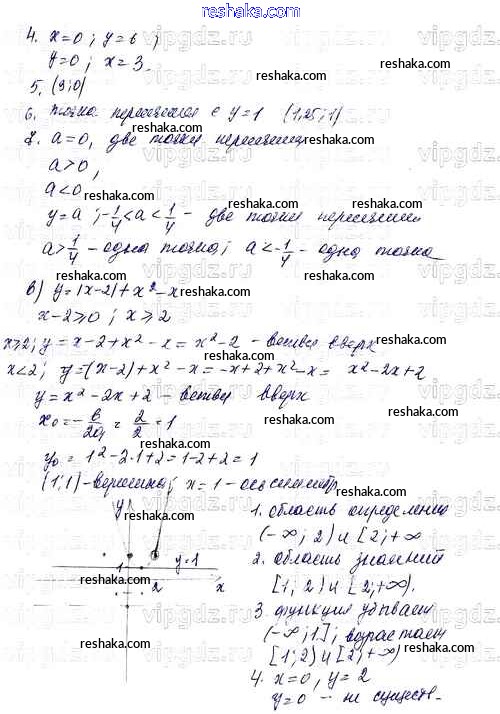 reshaka.com
4. x=0; y=6;
y=0; x=3
5. (3;0)
6. точка пересечения с y=1 (1,25;1)
7. a=0, две точки пересечения
a>0,
a<0
y=a; -1/4<a<1/4 - две точки пересечения
a>1/4 - одна точка; a<-1/4 - одна точка
в) y=|x-2|+x²-x
x-2≥0; x≥2
x≥2; y=x-2+x²-x=x²-2 - ветви вверх
x<2; y=-(x-2)+x²-x=-x+2+x²-x= x²-2x+2
y=x²-2x+2 - ветви вверх
x₀=-b/2a=2/2=1
y₀=1²-2·1+2=1-2+2=1
(1;1)-вершина; x=1-ось симметр
y
1
y=1
2
x
1. область определения
(-∞;2)и[2;+∞
2. область значений
[1;2)и[2;+∞).
3. функция убывает
(-∞;1]; возрастает
[1;2)и[2;+∞)
4. x=0, y=2
y=0 - не существ.
reshaka.com